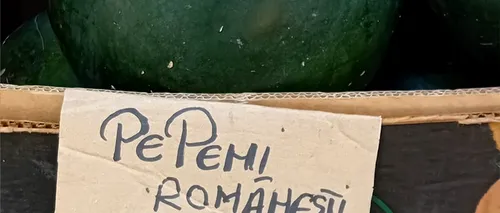 PePeNI
ROMÂNEȘTI